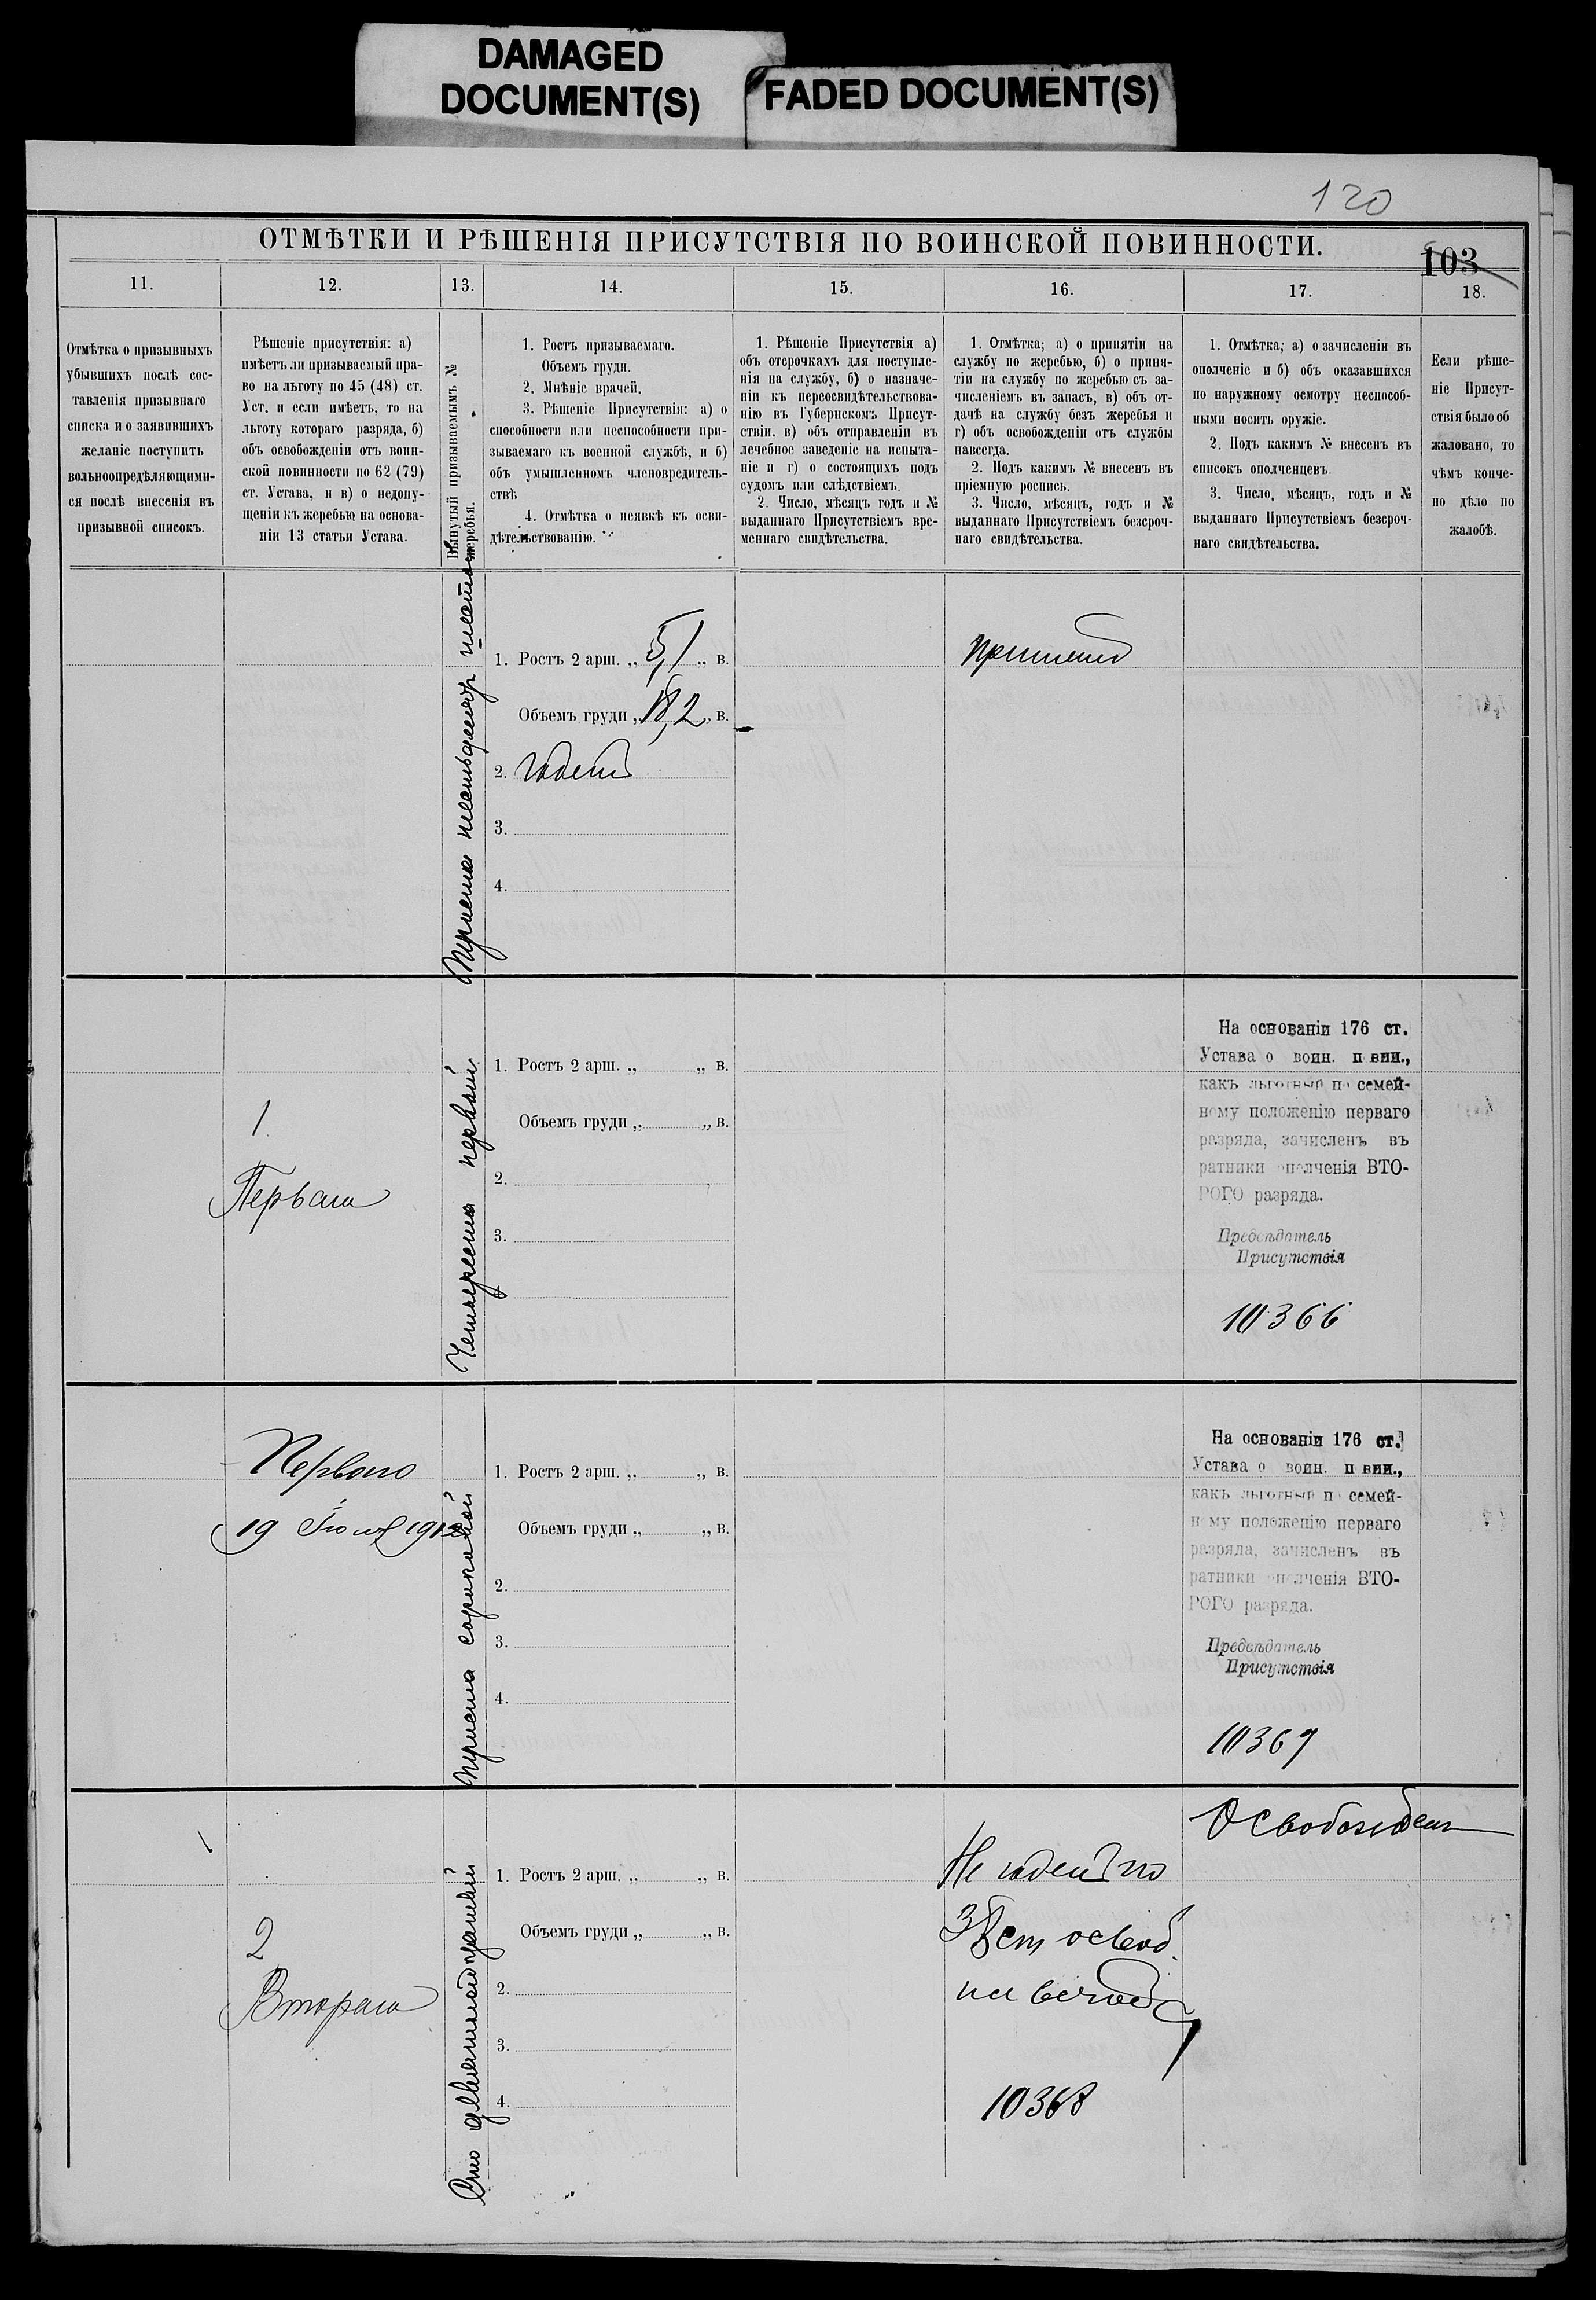 DAMAGED
DOCUMENT(S)
FADED DOCUMENT(S)
120
ОТМѢТКИ И РѢШЕНІЯ ПРИСУТСТВІЯ ПО ВОИНСКОЙ ПОВИННОСТИ.
103
11.
12.
13.
14.
15.
16.
17.
18.
Отмѣтка о призывныхъ
убывшихъ послѣ сос-
тавленія призывнаго
списка и о заявившихъ
желаніе поступить
вольноопредѣляющими-
ся послѣ внесенія въ
призывной списокъ.
Рѣшеніе присутствія: а)
имѣетъ ли призываемый пра-
во на льготу по 45 (48) ст.
Уст. и если имѣетъ, то на
льготу котораго разряда, б)
объ освобожденіи отъ воин-
ской повинности по 62 (79)
ст. Устава, и в) о недопу-
щеніи къ жеребью на основа-
ніи 13 статьи Устава.
Вынутый призываемымъ №
жеребья.
1. Ростъ призываемаго.
Объемъ груди.
2. Мнѣніе врачей.
3. Рѣшеніе Присутствія: а) о
способности или неспособности при-
зываемаго къ военной службѣ, и б)
объ умышленномъ членовредитель-
ствѣ
4. Отмѣтка о неявкѣ къ осви-
дѣтельствованію.
1. Рѣшеніе Присутствія а)
объ отсрочкахъ для поступле-
нія на службу, б) о назначе-
ніи къ переосвидѣтельствова-
нію въ Губернскомъ Присут-
ствіи, в) объ отправленіи въ
лечебное заведеніе на испыта-
ніе и г) о состоящихъ подъ
судомъ или слѣдствіемъ.
2. Число, мѣсяцъ годъ и №
выданнаго Присутствіемъ вре-
меннаго свидѣтельства.
1. Отмѣтка; а) о принятіи на
службу по жеребью, б) о приня-
тіи на службу по жеребью съ за-
численіемъ въ запасъ, в) объ от-
дачѣ на службу безъ жеребья и
г) объ освобожденіи отъ службы
навсегда.
2. Подъ какимъ № внесенъ въ
пріемную роспись.
3. Число, мѣсяцъ, годъ и №
выданнаго Присутствіемъ безсроч-
наго свидѣтельства.
1. Отмѣтка; а) о зачисленіи въ
ополченіе и б) объ оказавшихся
по наружному осмотру неспособ-
ными носить оружіе.
2. Подъ какимъ № внесенъ въ
списокъ ополченцевъ.
3. Число, мѣсяцъ, годъ и №
выданнаго Присутствіемъ безсроч-
наго свидѣтельства.
Если рѣше-
ніе Присут-
ствія было об
жаловано, то
чѣмъ конче-
но дѣло по
жалобѣ.
Триста шестьдесят шестой
1. Ростъ 2 арш. „ 5,1 „ в.
Объемъ груди „ 18,2 „ в.
2. годенъ
3.
4.
принятъ
1
Перваго
Четыреста первый
1. Ростъ 2 арш. „ „ в.
Объемъ груди „ „ в.
2.
3.
4.
На основаніи 176 ст.
Устава о воин. п вин.,
какъ льготный по семей-
ному положенію перваго
разряда, зачисленъ въ
ратники ополченія ВТО-
РОГО разряда.
Предсѣдатель
Присутствія
10366
Перваго
19 Іюня 1912
Триста сороковой
1. Ростъ 2 арш. „ „ в.
Объемъ груди „ „ в.
2.
3.
4.
На основаніи 176 ст.
Устава о воин. п вин.,
какъ льготный по семей-
ному положенію перваго
разряда, зачисленъ въ
ратники ополченія ВТО-
РОГО разряда.
Предсѣдатель
Присутствія
10367
2
Втораго
Сто девятнадцатый
1. Ростъ 2 арш. „ „ в.
Объемъ груди „ „ в.
2.
3.
4.
Не годенъ по
ст освоб.
на всегда
10368
Освобожденъ